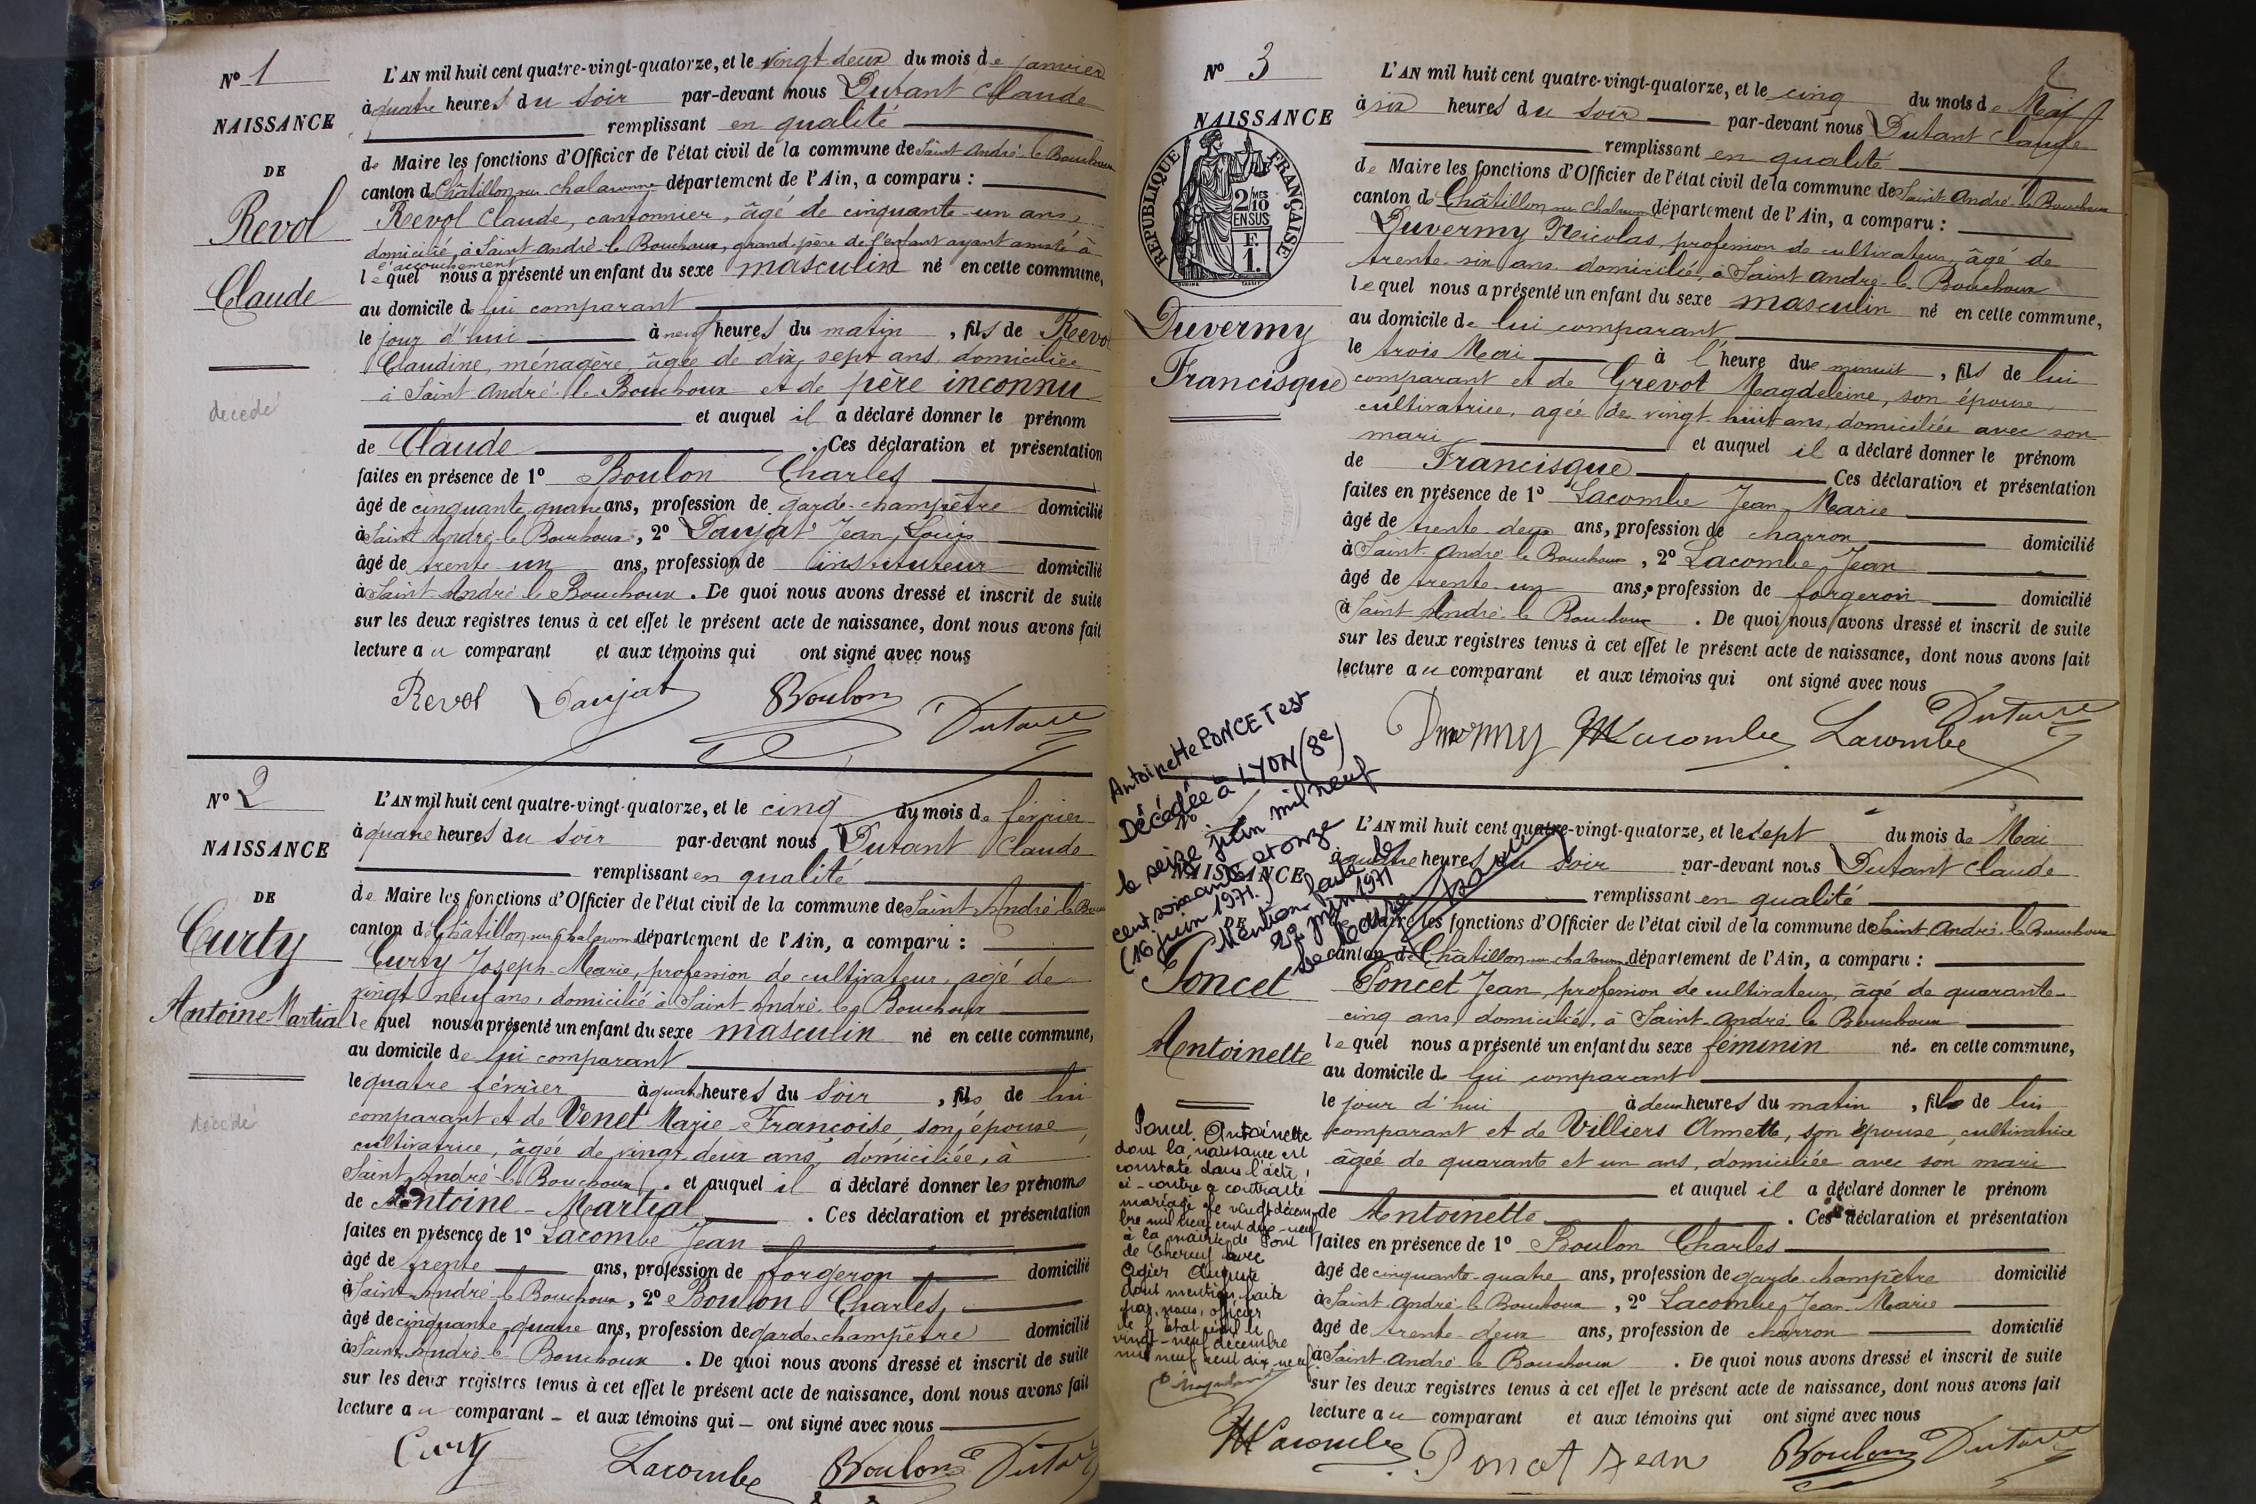 Nº 1
NAISSANCE
DE
Revol
Claude
décédé
L'AN mil huit cent quatre-vingt-quatorze, et le vingt deux du mois de janvier
à quatre heures du soir par-devant nous Dutant Claude
remplissant en qualité
de Maire les fonctions d'Officier de l'état civil de la commune de Saint André-le Bouchoux
canton de Châtillon sur Chalaronne département de l'Ain, a comparu :
Revol Claude, cantonnier, âgé de cinquante-un ans,
domicilié à Saint André-le Bouchoux, grand-père de l'enfant ayant assisté à
l'accouchement
lequel nous a présenté un enfant du sexe masculin né en cette commune,
au domicile de lui comparant
le jour d'hui à neuf heures du matin, fils de Revol
Claudine, ménagère, âgée de dix sept ans, domiciliée
à Saint André-le Bouchoux et de père inconnu
et auquel il a déclaré donner le prénom
de Claude . Ces déclaration et présentation
faites en présence de 1º Boulon Charles
âgé de cinquante quatre ans, profession de garde-champêtre domicilié
à Saint André-le Bouchoux, 2º Daujat Jean Louis
âgé de trente un ans, profession de instituteur domicilié
à Saint André le Bouchoux. De quoi nous avons dressé et inscrit de suite
sur les deux registres tenus à cet effet le présent acte de naissance, dont nous avons fait
lecture au comparant et aux témoins qui ont signé avec nous
Revol Daujat Boulon
Nº 2
NAISSANCE
DE
Curty
Antoine-Martial
décédé
L'AN mil huit cent quatre-vingt-quatorze, et le cinq du mois de février
à quatre heures du soir par-devant nous Dutant Claude
remplissant en qualité
de Maire les fonctions d'Officier de l'état civil de la commune de Saint André le Bou
canton de Châtillon sur Chalaronne département de l'Ain, a comparu :
Curty Joseph-Marie, profession de cultivateur, agé de
vingt neuf ans, domicilié à Saint-André-le Bouchoux
lequel nous a présenté un enfant du sexe masculin né en cette commune,
au domicile de lui comparant
le quatre février à quatre heures du soir, fils de lui
comparant et de Venet Marie-Françoise son épouse,
cultivatrice, âgée de vingt deux ans, domiciliée, à
Saint André-le Bouchoux. et auquel il a déclaré donner les prénoms
de Antoine-Martial . Ces déclaration et présentation
faites en présence de 1º Lacombe Jean
âgé de trente ans, profession de forgeron domicilié
à Saint-André-le Bouchoux, 2º Boulon Charles,
âgé de cinquante-quatre ans, profession de garde-champêtre domicilié
à Saint-André-le-Bouchoux. De quoi nous avons dressé et inscrit de suite
sur les deux registres tenus à cet effet le présent acte de naissance, dont nous avons fait
lecture au comparant - et aux témoins qui - ont signé avec nous
Curty Lacombe Boulon
Nº 3
NAISSANCE
RÉPUBLIQUE FRANÇAISE
2 MES
10
EN SUS
F.
1.
Duvermy
Francisque
L'AN mil huit cent quatre-vingt-quatorze, et le cinq du mois de Mai
à six heures du soir par-devant nous Dutant Claude
remplissant en qualité
de Maire les fonctions d'Officier de l'état civil de la commune de Saint André-le Bouchoux
canton de Châtillon sur Chalaronne département de l'Ain, a comparu :
Duvermy Nicolas, profession de cultivateur, âgé de
trente-six ans, domicilié, à Saint André-le Bouchoux
lequel nous a présenté un enfant du sexe masculin né en cette commune,
au domicile de lui comparant
le trois Mai à l'heure de minuit, fils de lui
comparant et de Grevot Magdeleine, son épouse,
cultivatrice, agée de vingt-huit ans, domiciliée avec son
mari et auquel il a déclaré donner le prénom
de Francisque Ces déclaration et présentation
faites en présence de 1º Lacombe Jean Marie
âgé de trente deux ans, profession de charron domicilié
à Saint-André-le Bouchoux, 2º Lacombe Jean
âgé de trente un ans, profession de forgeron domicilié
à Saint André-le Bouchoux. De quoi nous avons dressé et inscrit de suite
sur les deux registres tenus à cet effet le présent acte de naissance, dont nous avons fait
lecture au comparant et aux témoins qui ont signé avec nous
Duvermy Lacombe
Antoinette PONCET est
Décédée à LYON (8e)
le seize juin mil neuf
cent soixante et onze
(16 juin 1971.)
Mention faite le
22 juin 1971
Nº
NAISSANCE
DE
Poncet
Antoinette
L'AN mil huit cent quatre-vingt-quatorze, et le sept du mois de Mai
à quatre heures du soir par-devant nous Dutant Claude
remplissant en qualité
de Maire les fonctions d'Officier de l'état civil de la commune de Saint André-le Bouchoux
canton de Châtillon sur Chalaronne département de l'Ain, a comparu :
Poncet Jean, profession de cultivateur, âgé de quarante-
cinq ans, domicilié, à Saint-André le Bouchoux
lequel nous a présenté un enfant du sexe féminin née en cette commune,
au domicile de lui comparant
le jour d'hui à deux heures du matin, fille de lui
comparant et de Villiers Annette, son épouse, cultivatrice
âgée de quarante et un ans, domiciliée avec son mari
et auquel il a déclaré donner le prénom
de Antoinette . Ces déclaration et présentation
faites en présence de 1º Boulon Charles
âgé de cinquante-quatre ans, profession de garde-champêtre domicilié
à Saint-André-le Bouchoux, 2º Lacombe Jean-Marie
âgé de trente-deux ans, profession de charron domicilié
à Saint-André-le Bouchoux. De quoi nous avons dressé et inscrit de suite
sur les deux registres tenus à cet effet le présent acte de naissance, dont nous avons fait
lecture au comparant et aux témoins qui ont signé avec nous
Poncet Antoinette
dont la naissance est
constatée dans l'acte
ci-contre a contracté
mariage le vingt décem
bre mil neuf cent dix-neuf
à la mairie de Pont
de Cheruy avec
Ogier Auguste
dont mention faite
par nous, officier
de l'état civil le
vingt-neuf décembre
mil neuf cent dix-neuf.
Poncet Jean Boulon